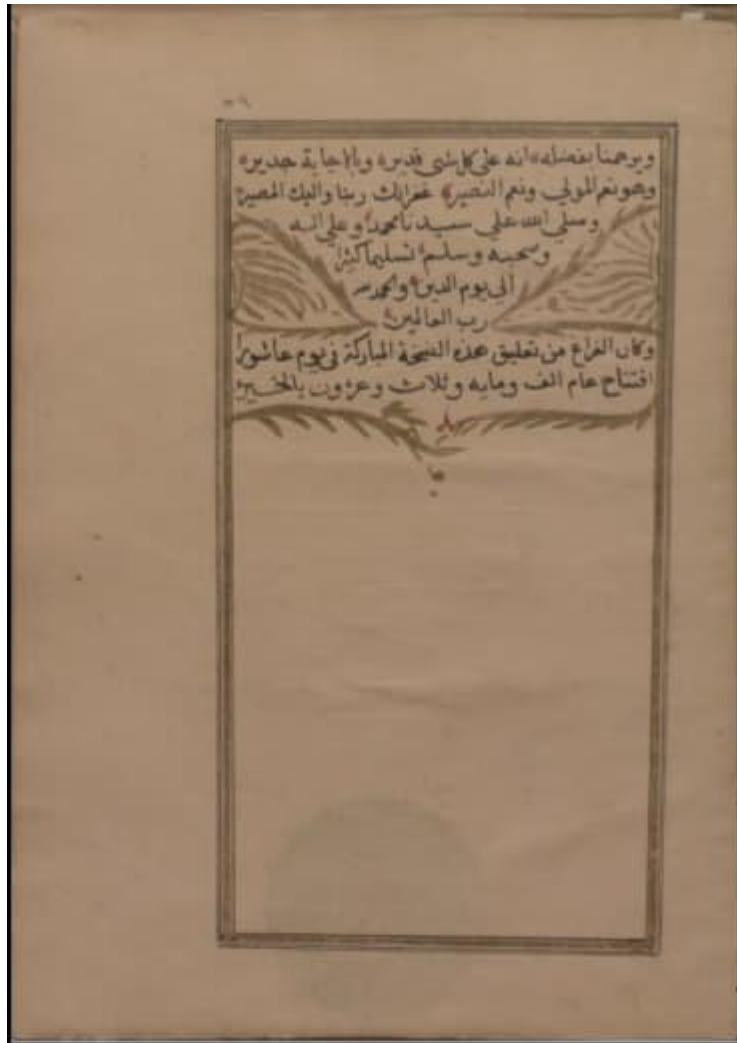 ويرحمنا بفضله انه على كل شى قدير وبالاجابة جدير
وهو نعم المولي ونعم النصير غفرانك ربنا واليك المصير
وصلي الله علي سيدنا محمد وعلي اله
وصحبه وسلم تسليما كثيرا
الي يوم الدين والحمد لله
رب العالمين
وكان الفراغ من تعليق هذه النسخة المباركة في يوم عاشورا
افتتاح عام الف ومايه وثلاث وعشرون بالخير